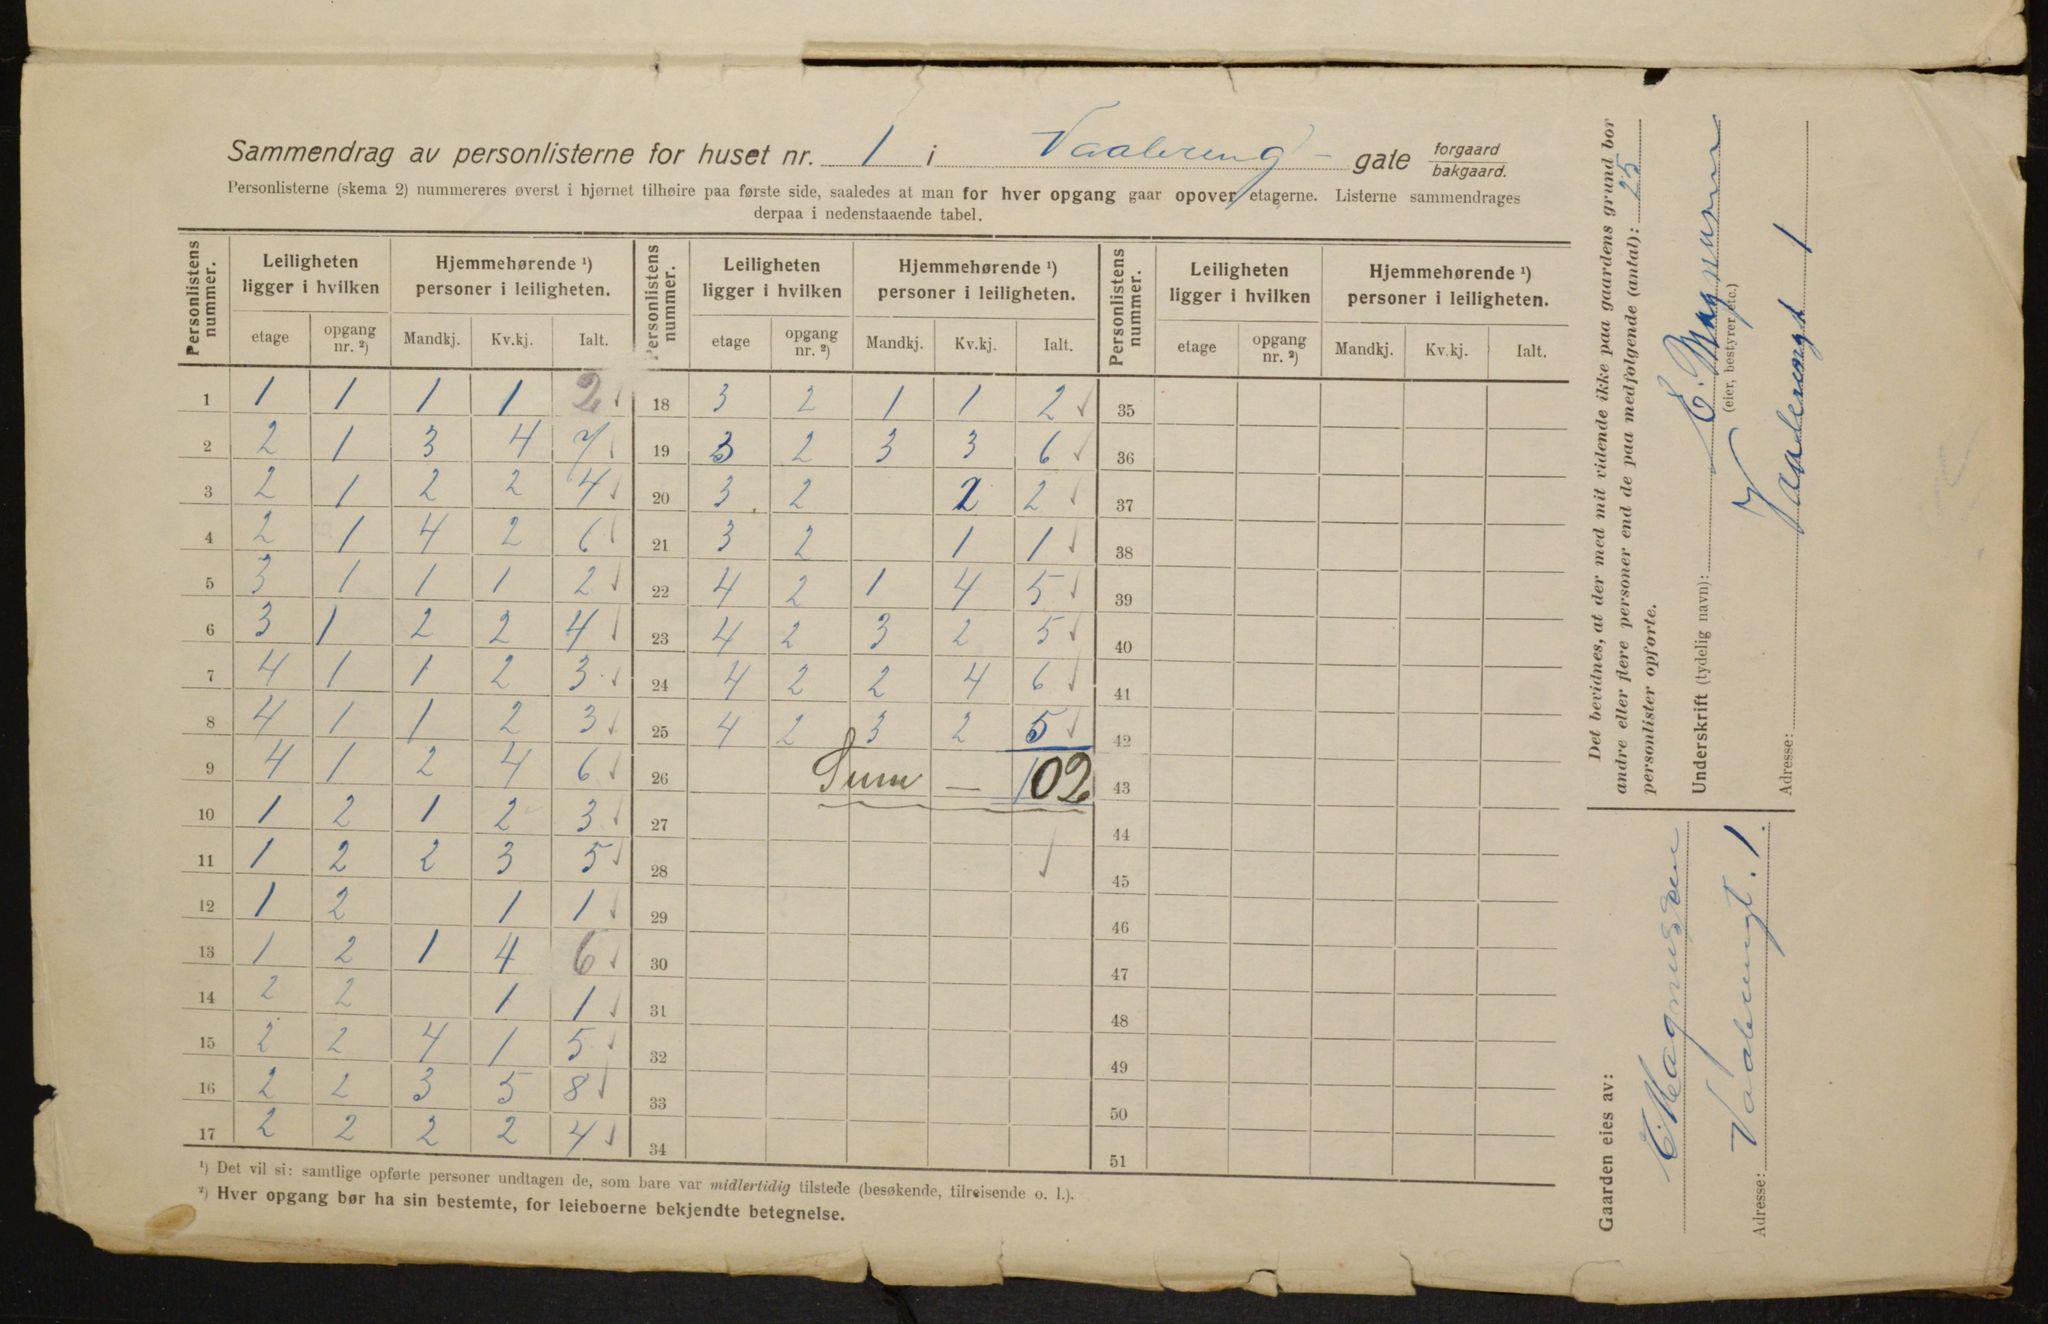 Sammendrag av personlisterne for huset nr. 1 i Vaalereng - gate forgaard bakgaard.
Personlisterne (skema 2) nummereres øverst i hjørnet tilhøire paa første side, saaledes at man for hver opgang gaar opover etagerne. Listerne sammendrages
derpaa i nedenstaaende tabel.
Personlistens nummer. | Leiligheten ligger i hvilken | Hjemmehørende ¹) personer i leiligheten. | Personlistens nummer. | Leiligheten ligger i hvilken | Hjemmehørende ¹) personer i leiligheten. | Personlistens nummer. | Leiligheten ligger i hvilken | Hjemmehørende ¹) personer i leiligheten.
etage | opgang nr. ²) | Mandkj. | Kv.kj. | Ialt. | etage | opgang nr. ²) | Mandkj. | Kv.kj. | Ialt. | etage | opgang nr. ²) | Mandkj. | Kv.kj. | Ialt.
1 | 1 | 1 | 1 | 1 | 2 ✓ | 18 | 3 | 2 | 1 | 1 | 2 ✓ | 35
2 | 2 | 1 | 3 | 4 | 7 ✓ | 19 | 3 | 2 | 3 | 3 | 6 ✓ | 36
3 | 2 | 1 | 2 | 2 | 4 ✓ | 20 | 3 | 2 | | 2 | 2 ✓ | 37
4 | 2 | 1 | 4 | 2 | 6 ✓ | 21 | 3 | 2 | | 1 | 1 ✓ | 38
5 | 3 | 1 | 1 | 1 | 2 ✓ | 22 | 4 | 2 | 1 | 4 | 5 ✓ | 39
6 | 3 | 1 | 2 | 2 | 4 ✓ | 23 | 4 | 2 | 3 | 2 | 5 ✓ | 40
7 | 4 | 1 | 1 | 2 | 3 ✓ | 24 | 4 | 2 | 2 | 4 | 6 ✓ | 41
8 | 4 | 1 | 1 | 2 | 3 ✓ | 25 | 4 | 2 | 3 | 2 | 5 ✓ | 42
9 | 4 | 1 | 2 | 4 | 6 ✓ | 26 | Sum — 102 | 43
10 | 1 | 2 | 1 | 2 | 3 ✓ | 27 | 44
11 | 1 | 2 | 2 | 3 | 5 ✓ | 28 | ✓ | 45
12 | 1 | 2 | | 1 | 1 ✓ | 29 | 46
13 | 1 | 2 | 1 | 4 | 6 ✓ | 30 | 47
14 | 2 | 2 | | 1 | 1 ✓ | 31 | 48
15 | 2 | 2 | 4 | 1 | 5 ✓ | 32 | 49
16 | 2 | 2 | 3 | 5 | 8 ✓ | 33 | 50
17 | 2 | 2 | 2 | 2 | 4 ✓ | 34 | 51
¹) Det vil si: samtlige opførte personer undtagen de, som bare var midlertidig tilstede (besøkende, tilreisende o. l.).
²) Hver opgang bør ha sin bestemte, for leieboerne bekjendte betegnelse.
Det bevidnes, at der med mit vidende ikke paa gaardens grund bor
andre eller flere personer end de paa medfølgende (antal): 25
personlister opførte.
Underskrift (tydelig navn): E. Magnussen
(eier, bestyrer etc.)
Adresse: Vaalerengt 1
Gaarden eies av:
E. Magnussen
Adresse: Vaalerengt. 1.